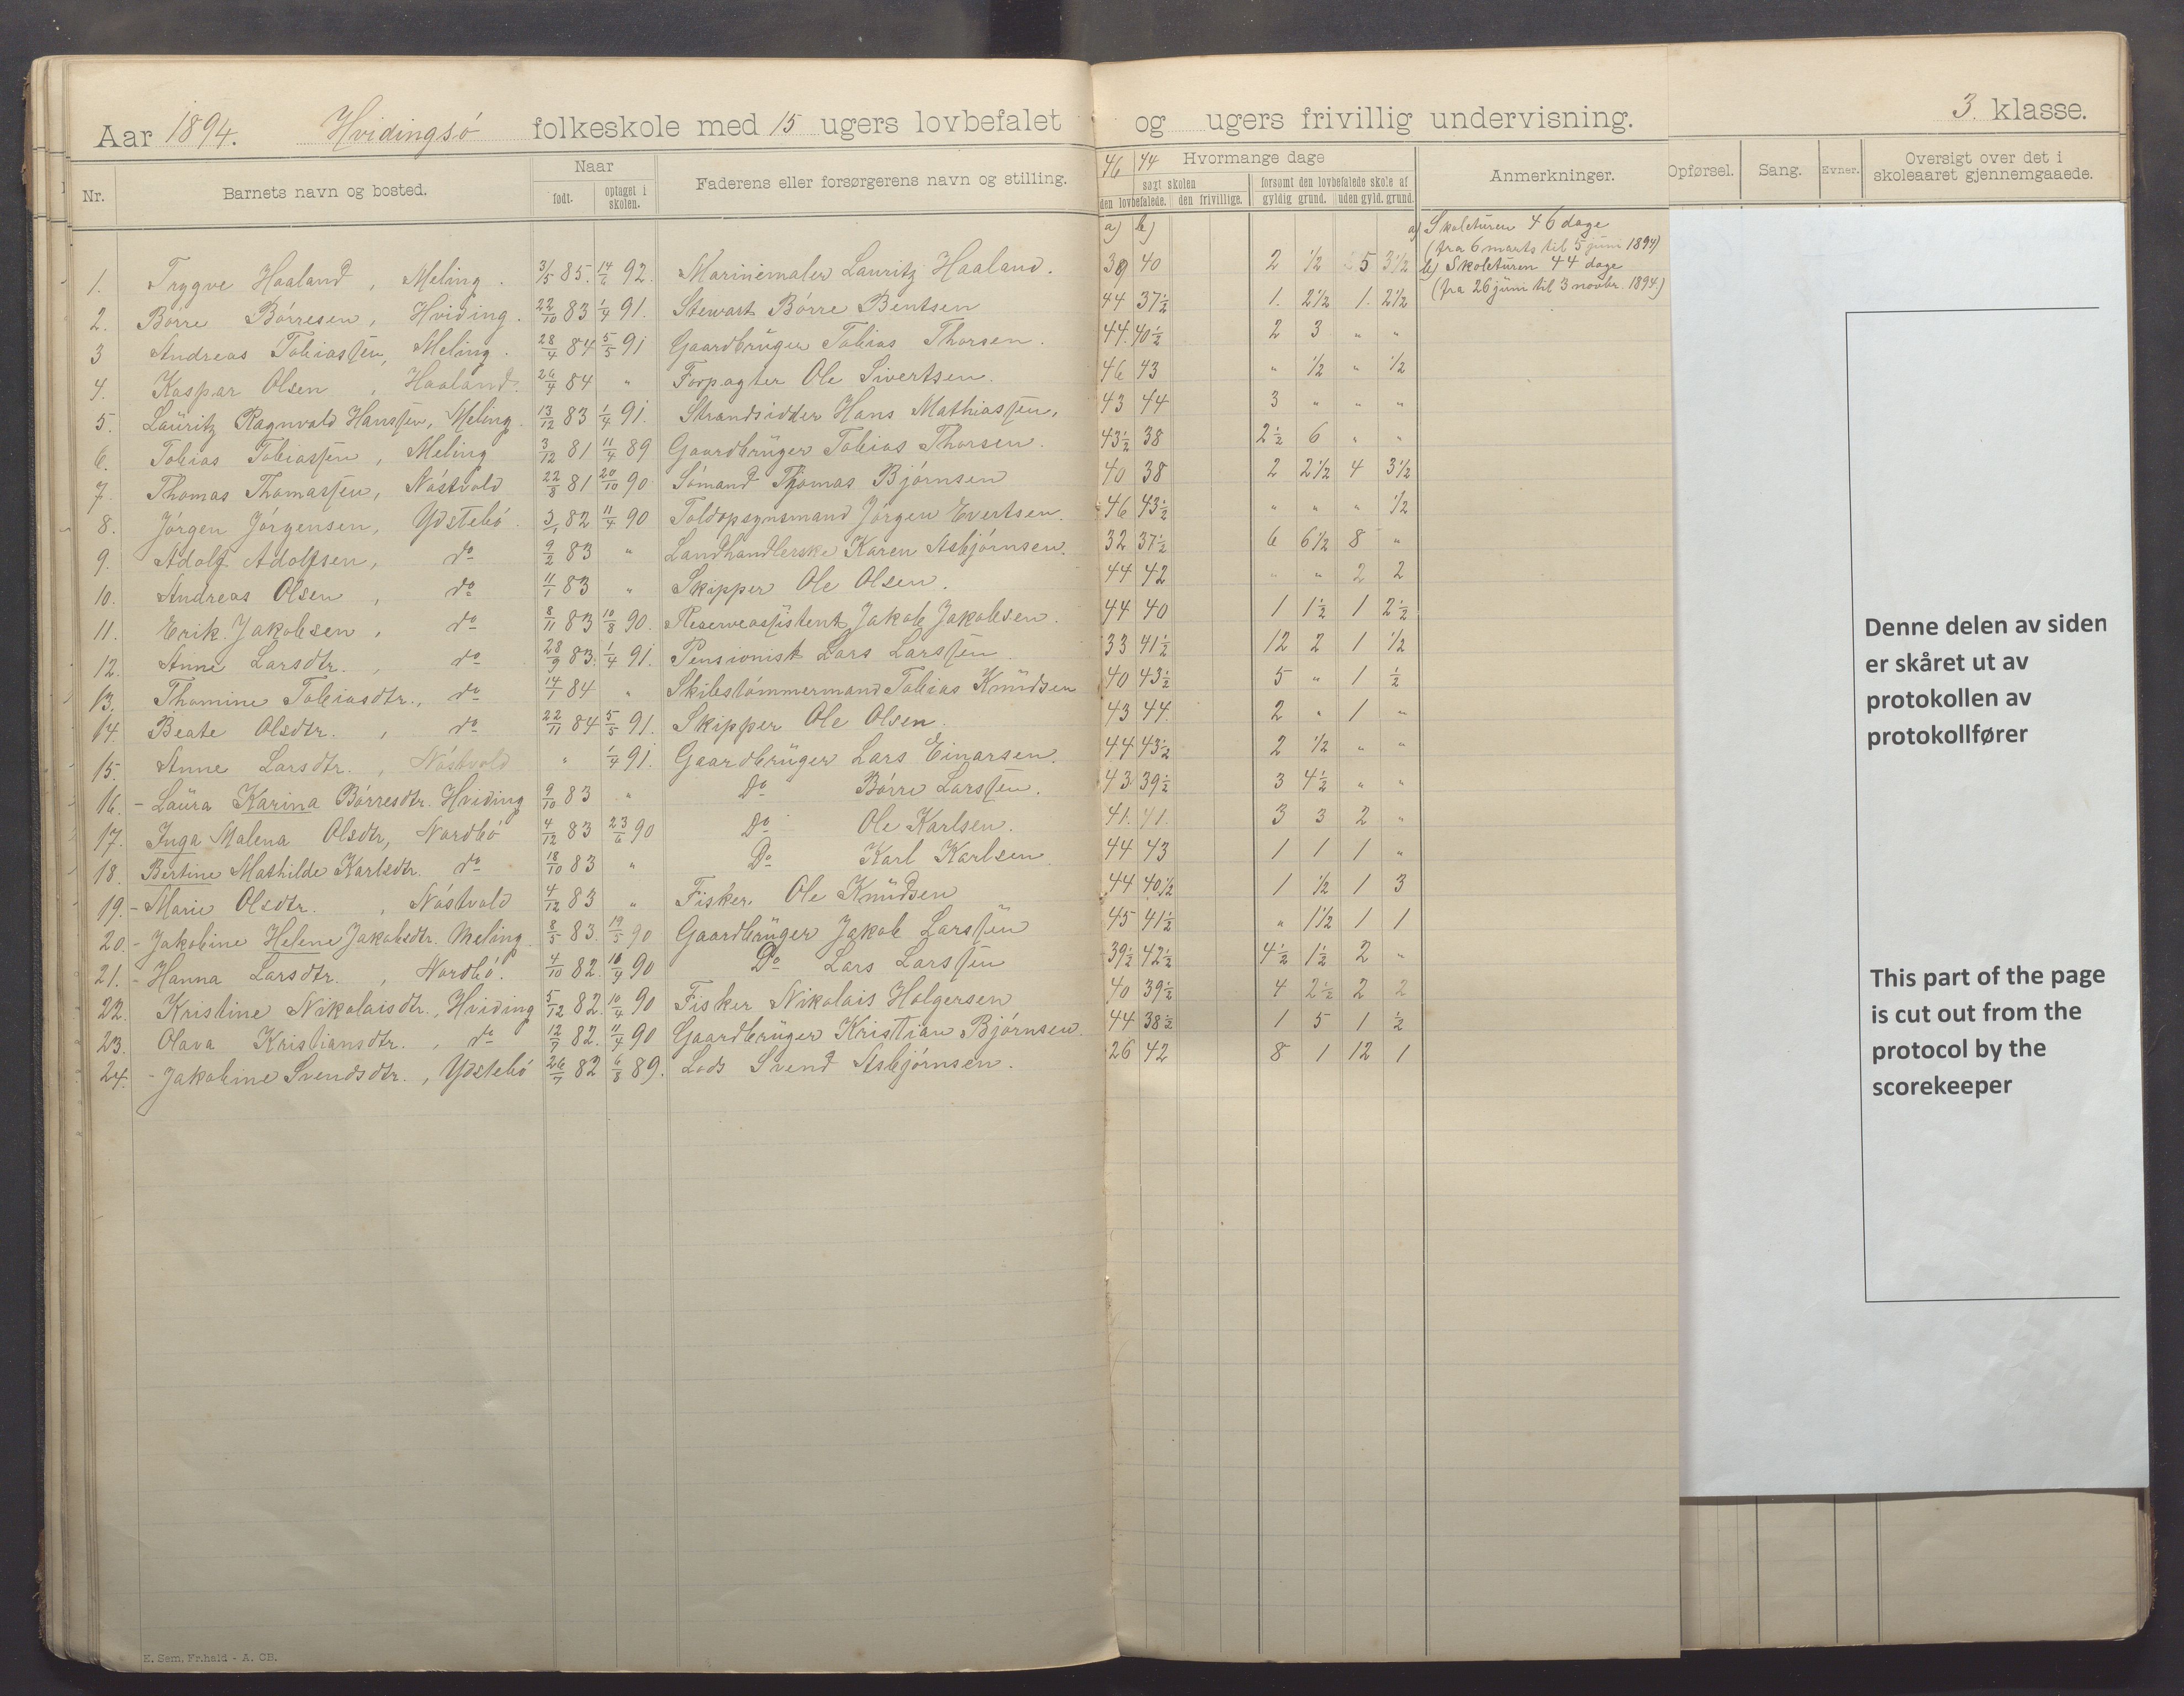 Aar 1894. Hvidingsø folkeskole med 15 ugers lovbefalet og ugers frivillig undervisning. 3. klasse.
Nr. Barnets navn og bosted. Naar født. optaget i skolen. Faderens eller forsørgerens navn og stilling. 46 44 Hvormange dage søgt skolen den lovbefalede. den frivillige. forsømt den lovbefalede skole af gyldig grund. uden gyld. grund. Anmerkninger. Opførsel. Sang. Evner. Oversigt over det i skoleaaret gjennemgaaede.
a) b)
a) Skoleturen 46 dage
(fra 6 marts til 5 juni 1894)
b) Skoleturen 44 dage
(fra 26 juni til 3 novbr. 1894)
1. Trygve Haaland, Meling. 3/5 85. 14/6 92. Marinemaler Lauritz Haaland. 39 40 2 1/2 5 3 1/2
2. Børre Børresen, Hviding. 22/10 83 1/4 91. Stewart Børre Bentsen 44 37 1/2 1. 2 1/2 1. 2 1/2
3 Andreas Tobiassen, Meling. 28/4 84 5/5 91 Gaardbruger Tobias Thorsen. 44. 40 1/2 2 3 " "
4. Kaspar Olsen, Haaland. 26/4 84 " Forpagter Ole Sivertsen. 46 43 " 1/2 " 1/2
5. Lauritz Ragnvald Hanssen, Meling. 13/12 83 1/4 91. Strandsidder Hans Mathiassen. 43 44 3 " " "
6. Tobias Tobiassen, Meling 3/12 81 11/4 89 Gaardbruger Tobias Thorsen. 43 1/2 38 2 1/2 6 " "
7. Thomas Thomassen, Nástvold 22/8 81 20/10 90 Sømand Thomas Bjørnsen 40 38 2 2 1/2 4 3 1/2
8. Jørgen Jørgensen, Ydstebø. 3/1 82 11/4 90 Toldopsynsmand Jørgen Evertsen. 46 43 1/2 " " " 1/2
9. Adolf Adolfsen, do 9/2 83 " Landhandlerske Karen Asbjørnsen. 32 37 1/2 6 6 1/2 8 "
10. Andreas Olsen, do 11/1 83 " Skipper Ole Olsen. 44 42 " " 2 2
11. Erik Jakobsen, do 8/11 83 10/8 90. Reserveassistent Jakob Jakobsen. 44 40 1 1 1/2 1 2 1/2
12. Anne Larsdtr., do 28/9 83. 1/4 91. Pensionist Lars Larssen 33 41 1/2 12 2 1 1/2
13. Thomine Tobiasdtr., do 14/1 84 " Skibstømmermand Tobias Knudsen 40 43 1/2 5 " 1 1/2
14 Beate Olsdtr., do 22/11 84 5/5 91. Skipper Ole Olsen. 43 44. 2 " 1 "
15. Anne Larsdtr., Nástvold " 1/4 91. Gaardbruger Lars Einarsen. 44 43 1/2 2 1/2 " "
16. - Laura Karina Børresdtr. Hviding 9/10 83 " Do Børre Larssen. 43 39 1/2 3 4 1/2 " "
17. Inga Malena Olsdtr, Nordbø 4/12 83 23/6 90 Do Ole Karlsen. 41. 41. 3 3 2 "
18. Bertine Mathilde Karlsdtr. do 18/10 83 " Do Karl Karlsen 44 43 1 1 1 "
19. - Marie Olsdtr., Nástvold 4/12 83 " Fisker. Ole Knudsen 44 40 1/2 1 1/2 1 3
20. - Jakobine Helene Jakobsdtr. Meling 8/5 83. 19/5 90 Gaardbruger Jakob Larssen 45 41 1/2 " 1 1/2 1 1
21. - Hanna Larsdtr., Nordbø. 4/10 82. 10/4 90 Do Lars Larssen 39 1/2 42 1/2 4 1/2 1 1/2 2 "
22. Kristine Nikolaisdtr., Hviding 5/12 82. 10/4 90 Fisker Nikolais Holgersen 40 39 1/2 4 2 1/2 2 2
23. Olava Kristiansdtr., do 12/7 82. 11/4 90 Gaardbruger Kristian Bjørnsen. 44 38 1/2 1 5 1 1/2
24. - Jakobine Svendsdtr., Ydstebø 26/7 82 6/8 89. Lods Svend Asbjørnsen. 26 42 8 1 12 1
Denne delen av siden
er skåret ut av
protokollen av
protokollfører
This part of the page
is cut out from the
protocol by the
scorekeeper
E. Sem. Fr.hald - A. CB.